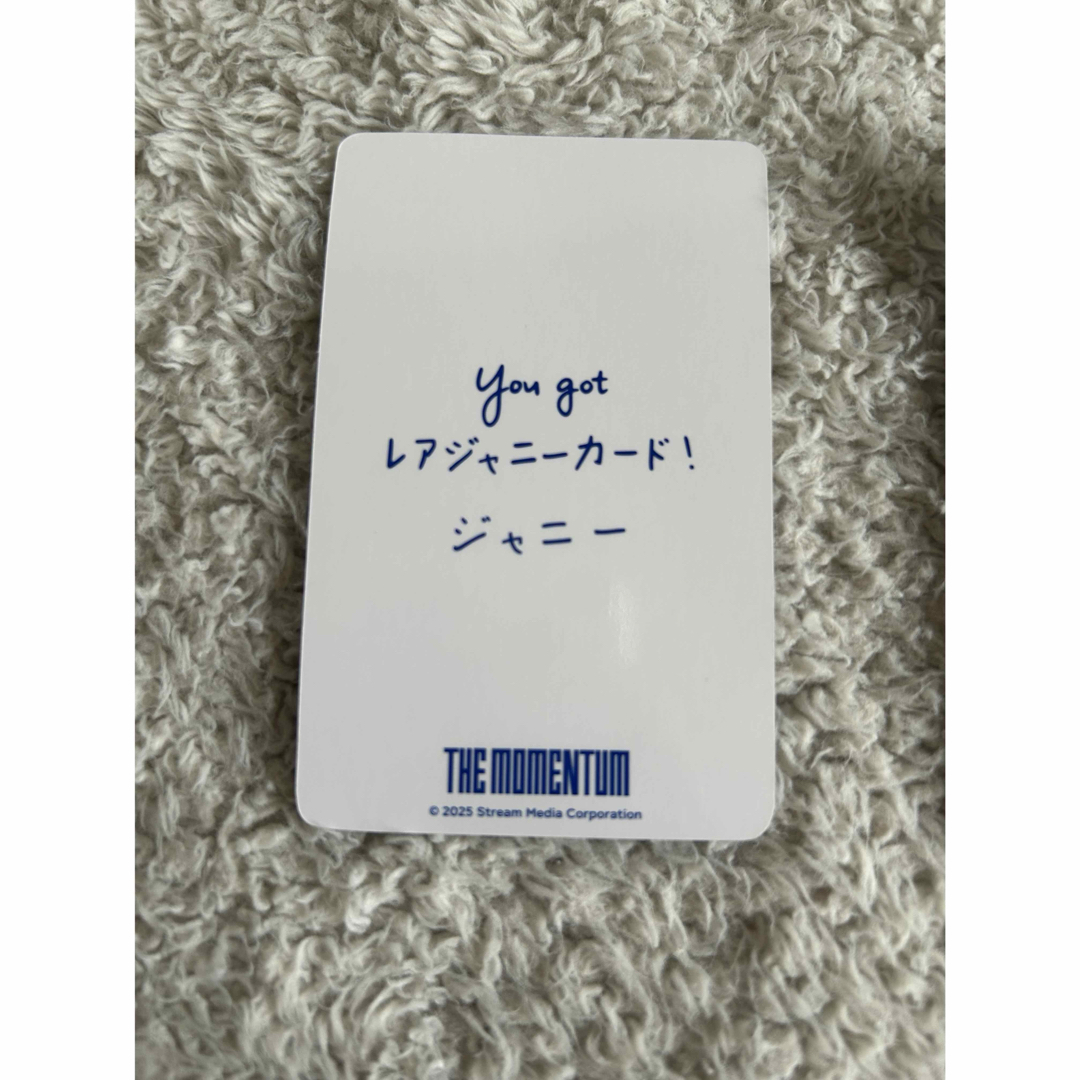 You got
レアジャニーカード!
ジャニー
THE MOMENTUM
© 2025 Stream Media Corporation